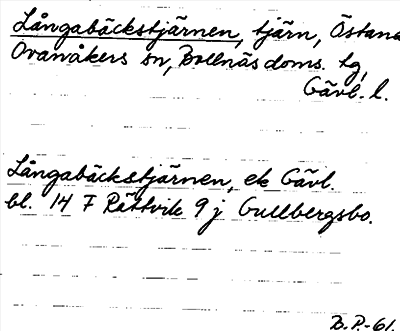 Långabäckstjärnen, tjärn, Östana
Ovanåkers sn, Bollnäs doms. tg,
Gävl. l.
Långabäckstjärnen, ek Gävl.
bl. 14 F Rättvik 9 j Gullbergsbo.
B.P.-61.